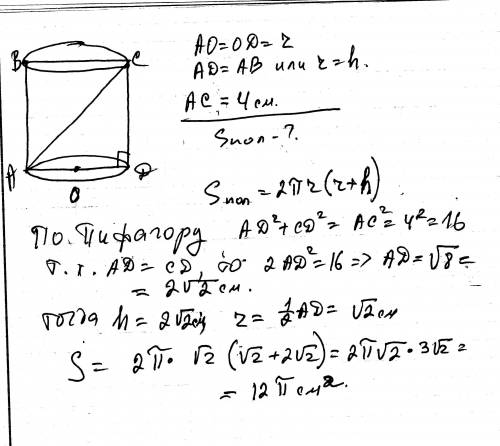 B C
A D
O
AO=OD=r
AD=AB или r=h.
AC=4см.
Sпол-?
Sпол=2πr(r+h)
По Пифагору AD²+CD²=AC²=4²=16
т.к. AD=CD, то 2AD²=16 => AD=√8=
=2√2см.
тогда h=2√2см r=½AD=√2см
S=2π·√2(√2+2√2)=2π√2·3√2=
=12πсм².